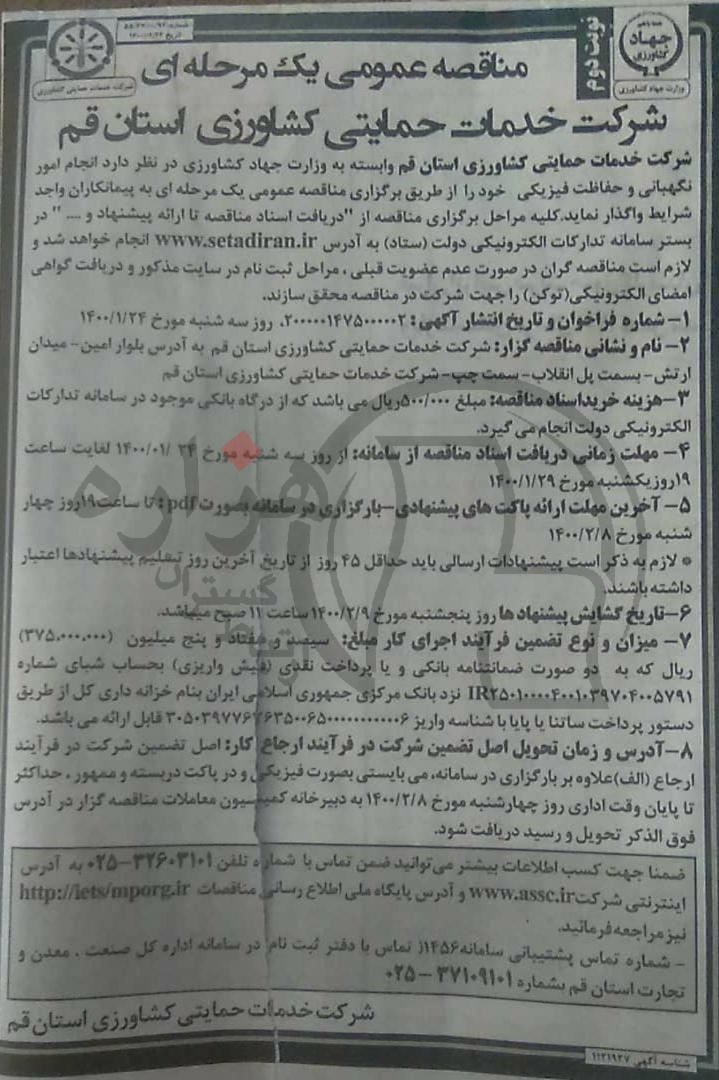 تاریخ ۱۴۰۰/۱/۲۴
نوبت دوم
جهاد کشاورزی
وزارت جهاد کشاورزی
شرکت خدمات حمایتی کشاورزی
مناقصه عمومی یک مرحله ای
شرکت خدمات حمایتی کشاورزی استان قم
شرکت خدمات حمایتی کشاورزی استان قم وابسته به وزارت جهاد کشاورزی در نظر دارد انجام امور
نگهبانی و حفاظت فیزیکی خود را از طریق برگزاری مناقصه عمومی یک مرحله ای به پیمانکاران واجد
شرایط واگذار نماید.کلیه مراحل برگزاری مناقصه از "دریافت اسناد مناقصه تا ارائه پیشنهاد و .... " در
بستر سامانه تدارکات الکترونیکی دولت (ستاد) به آدرس www.setadiran.ir انجام خواهد شد و
لازم است مناقصه گران در صورت عدم عضویت قبلی ، مراحل ثبت نام در سایت مذکور و دریافت گواهی
امضای الکترونیکی(توکن) را جهت شرکت در مناقصه محقق سازند.
۱- شماره فراخوان و تاریخ انتشار آگهی: ۲۰۰۰۰۰۱۴۷۵۰۰۰۰۰۲، روز سه شنبه مورخ ۱۴۰۰/۱/۲۴
۲- نام و نشانی مناقصه گزار: شرکت خدمات حمایتی کشاورزی استان قم به آدرس بلوار امین- میدان
ارتش- بسمت پل انقلاب- سمت چپ- شرکت خدمات حمایتی کشاورزی استان قم
۳-هزینه خریداسناد مناقصه: مبلغ ۵۰۰/۰۰۰ریال می باشد که از درگاه بانکی موجود در سامانه تدارکات
الکترونیکی دولت انجام می گیرد.
۴- مهلت زمانی دریافت اسناد مناقصه از سامانه: از روز سه شنبه مورخ ۲۴ /۱۴۰۰/۰۱ لغایت ساعت
۱۹روزیکشنبه مورخ ۱۴۰۰/۱/۲۹
۵- آخرین مهلت ارائه پاکت های پیشنهادی-بارگزاری در سامانه بصورت pdf: تا ساعت۱۹روز چهار
شنبه مورخ ۱۴۰۰/۲/۸
* لازم به ذکر است پیشنهادات ارسالی باید حداقل ۴۵ روز از تاریخ آخرین روز تسلیم پیشنهادها اعتبار
داشته باشند.
۶-تاریخ گشایش پیشنهاد ها روز پنجشنبه مورخ ۱۴۰۰/۲/۹ ساعت ۱۱ صبح میباشد.
۷- میزان و نوع تضمین فرآیند اجرای کار مبلغ: سیصد و هفتاد و پنج میلیون (۳۷۵،۰۰۰،۰۰۰)
ریال که به دو صورت ضمانتنامه بانکی و یا پرداخت نقدی (فیش واریزی) بحساب شبای شماره
IR۲۵۰۱۰۰۰۰۴۰۰۱۰۳۹۷۰۴۰۰۵۷۹۱ نزد بانک مرکزی جمهوری اسلامی ایران بنام خزانه داری کل از طریق
دستور پرداخت ساتنا یا پایا با شناسه واریز قابل ارائه می باشد.
۸-آدرس و زمان تحویل اصل تضمین شرکت در فرآیند ارجاع کار: اصل تضمین شرکت در فرآیند
ارجاع (الف)علاوه بر بارگزاری در سامانه، می بایستی بصورت فیزیکی و در پاکت دربسته و ممهور ، حداکثر
تا پایان وقت اداری روز چهارشنبه مورخ ۱۴۰۰/۲/۸ به دبیرخانه کمیسیون معاملات مناقصه گزار در آدرس
فوق الذکر تحویل و رسید دریافت شود.
ضمنا جهت کسب اطلاعات بیشتر می‌توانید ضمن تماس با شماره تلفن ۳۲۶۰۳۱۰۱-۰۲۵ به آدرس
اینترنتی شرکت www.assc.ir و آدرس پایگاه ملی اطلاع رسانی مناقصات http://iets/mporg.ir
نیز مراجعه فرمائید.
- شماره تماس پشتیبانی سامانه۱۴۵۶ تماس با دفتر ثبت نام در سامانه اداره کل صنعت ، معدن و
تجارت استان قم بشماره ۳۷۱۰۹۱۰۱ - ۰۲۵
شرکت خدمات حمایتی کشاورزی استان قم
شناسه آگهی ۱۱۲۱۹۲۷
هزاره
گستران